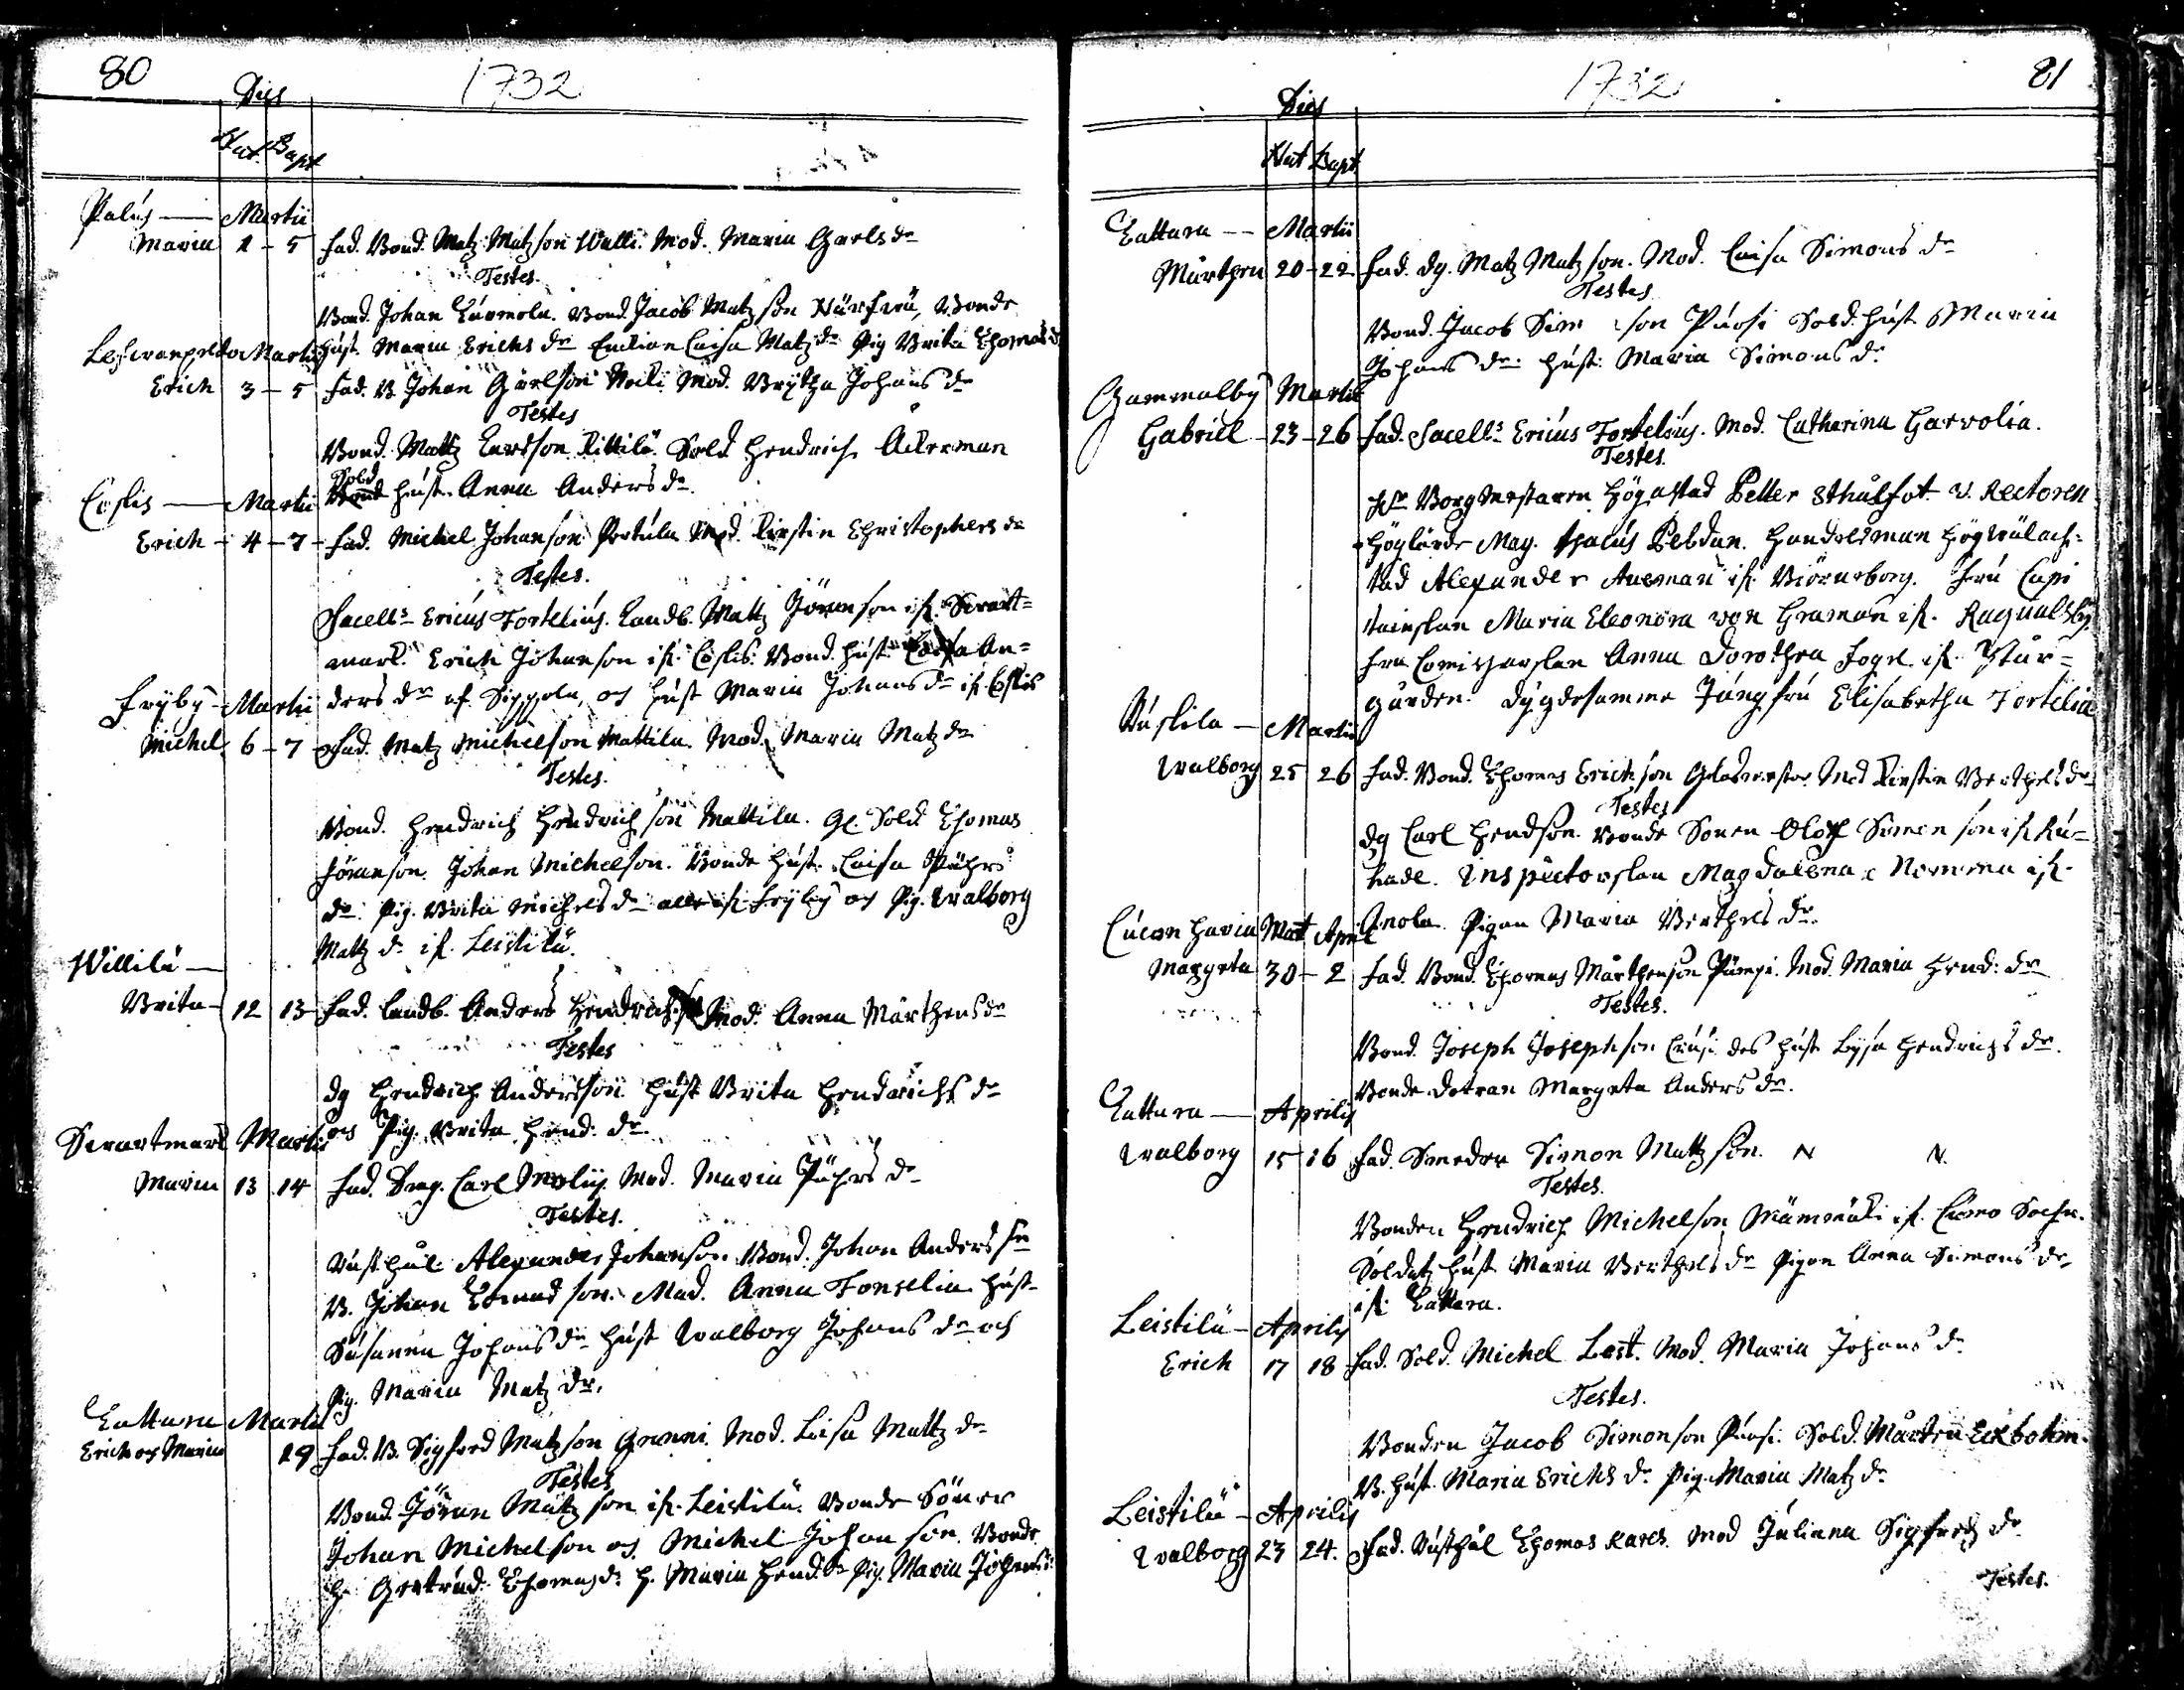 80
1732
Dies
Nat. Bapt
Palus — Martii
Maria 1 - 5 Fad. Bond. Matz Matzson Walli. Mod. Maria Carlsdr
Testes.
Bond. Johan Bond. Jacob Matzson Bonde
Martii hust. Maria Erichsdr Caisa Matzdr Pig Brita Thomasdr
Erich 3 - 5 Fad. B. Johan Mod. Brytha Johansdr
Testes
Bond. Mattz Larsson Kittilä Sold. Hendrich Ackerman
Sold hust. Anna Andersdr.
Coskis — Martii
Erich - 4 - 7 - Fad. Michel Johanson Mod. Kirstin Christophersdr
Testes.
Sacells Ericus Fortelius. Landb. Mattz Jöranson if. Swart=
mark. Erich Johanson if. Coskis. Bond. hust. Caisa An=
dersdr af och hust Maria Johansdr if. Coskis
Fryby - Martii
Michel 6 - 7 Fad. Matz Michelson Mattila. Mod. Maria Matzdr
Testes.
Bond. Hendrich Hendrichson Mattila. Gl. Sold. Thomas
Göranson. Johan Michelson. Bonde hust. Caisa Pährs
dr. Pig. Brita Michelsdr alle if Fryby och Pig. Walborg
Matz dr if. Leistilä.
Willilä —
Brita - 12 13 Fad. Landb. Anders Hendrichson Mod. Anna Mårthensdr
Testes
dg Hendrich Andersson hust Brita Hendrichsdr
och Pig. Brita Hend. dr.
Swartmark Martii
Maria 13 14 Fad. Drag. Carl Mod. Maria Pährsdr
Testes.
Rusthål. Alexander Johanson Bond. Johan Anderssn
B. Johan Mad. Anna Fonselia hust
Susanna Johansdr hust Walborg Johansdr och
Pig. Maria Matz dr.
Lattura Martii
Erich och Maria 19 Fad. B. Sigfred Matzson Granni. Mod. Lisa Mattzdr
Testes
Bond. Jöran Matzson if. Leistilä. Bonde Söner
Johan Michelson och Michel Johanson. Bonde
h. Gertrud Thomasdr. h. Maria Hend.dr Pig. Maria Johansdr
81
1732
Dies
Nat Bapt.
Lattura -- Martii
Mårthen 20 - 22 Fad. dg. Matz Matzson. Mod. Caisa Simonsdr
Testes
Bond. Jacob Simonson Purfi Sold. hust Maria
Johansdr. hust. Maria Simonsdr
Gammalby Martii
Gabriel - 23 - 26 Fad. Sacells Ericus Fortelius. Mod. Catharina Garvolia.
Testes.
Hr Borgmestaren Högachtad Petter Sthålfot v. Rectoren
Höglärde Mag. Handelsman Högwälach=
tad Alexander if. Biörneborg. Fru Capi
tainskan Maria Eleonora von Graman if. Ragnalsby
Fru Anna Dorothea Fogel if.
gården. dygdesamme Jungfru Elisabetha Fortelia
Ruskila — Martii
Walborg 25 26 Fad. Bond. Thomas Erichson Mod Kirstin Berthelsdr
Testes
dg Carl Hendson Bonde Sonen Oloff Simonson if
Inspectorskan Magdalena Nomma if.
Anola. Pigan Maria Berthelsdr.
Mart April
Margeta 30 - 2 Fad. Bond. Thomas Mårthenson Mod. Maria Hend. dr
Testes.
Bond. Joseph Josephson des hust Lysa Hendrichsdr.
Bonde dotran Margeta Andersdr.
Lattura — Aprilis
Walborg 15 16 Fad. Smeden Simon Mattzson. N N.
Testes.
Bonden Hendrich Michelson if. Cumo Sochn.
Soldatz hust Maria Berthelsdr Pigan Anna Simonsdr
if. Lattura.
Leistilä - Aprilis
Erich 17 18 Fad. Sold. Michel Last. Mod. Maria Johansdr
Testes.
Bonden Jacob Simonson Purfi. Sold. Mårten Ekbohm.
B. hust. Maria Erichsdr Pig. Maria Matzdr
Leistilä - Aprilis
Walborg 23 24. Fad. Rusthål Thomas Mod Juliana Sigfredzdr
Testes.